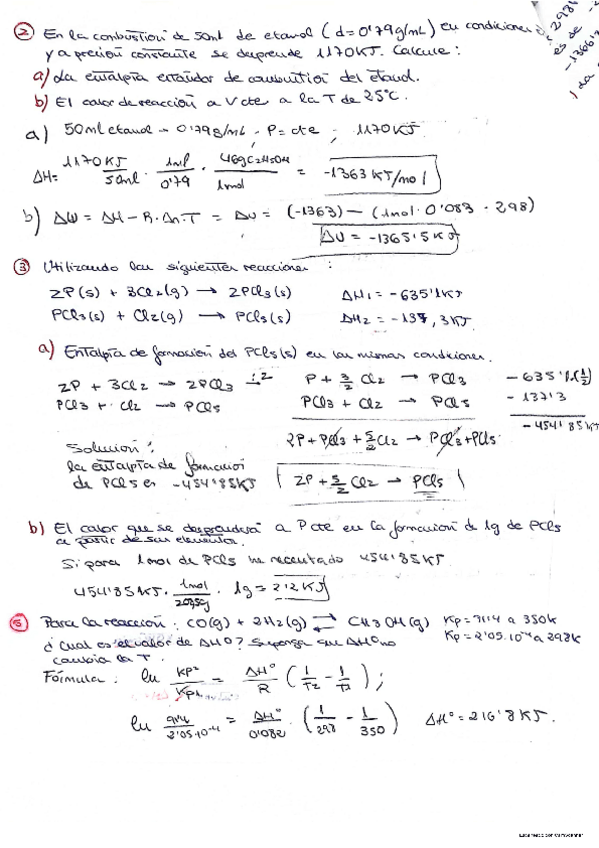 ② En la combustión de 50ml de etanol (d=0'79g/mL) en condiciones
y a presión constante se desprende 1170KJ. Calcule:
a) La entalpía estándar de combustión del etanol.
b) El calor de reacción a Vcte a la T de 25°C.
a) 50ml etanol - 0'79g/mL - P=cte ; 1170KJ
ΔH= 1170KJ/50ml · 1ml/0'79 · 46gC2H5OH/1mol = -1363 KJ/mol
b) ΔU = ΔH - R·Δn·T = ΔU = (-1363) - (1mol·0'083·298)
ΔU = -1365'5KJ
③ Utilizando las siguientes reacciones :
2P(s) + 3Cl2(g) → 2PCl3(s) ΔH1 = -635'1KJ
PCl3(s) + Cl2(g) → PCl5(s) ΔH2 = -137,3KJ
a) Entalpía de formación del PCl5(s) en las mismas condiciones.
2P + 3Cl2 → 2PCl3 ÷2 P + 3/2 Cl2 → PCl3 -635'1·(1/2)
PCl3 + Cl2 → PCl5 PCl3 + Cl2 → PCl5 -137'3
-454'85KJ
2P+PCl3+5/2Cl2 → PCl3+PCl5
Solución:
la entalpía de formación
de PCl5 es -454'85KJ
2P+5/2 Cl2 → PCl5
b) El calor que se desprenderá a Pcte en la formación de 1g de PCl5
a partir de sus elementos.
Si para 1mol de PCl5 he necesitado 454'85KJ
454'85KJ · 1mol/ · 1g = 2'2KJ
⑤ Para la reacción: CO(g) + 2H2(g) ⇄ CH3OH(g) Kp= a 350k
Kp= 2'05·10-4 a 298k
¿Cual es el valor de ΔH°? Suponga que ΔH° no
cambia la T.
Fórmula: ln KP2/KP1 = ΔH°/R (1/T2 - 1/T2) ;
ln /2'05·10-4 = ΔH°/0'082 · (1/298 - 1/350) ΔH°=216'8KJ.